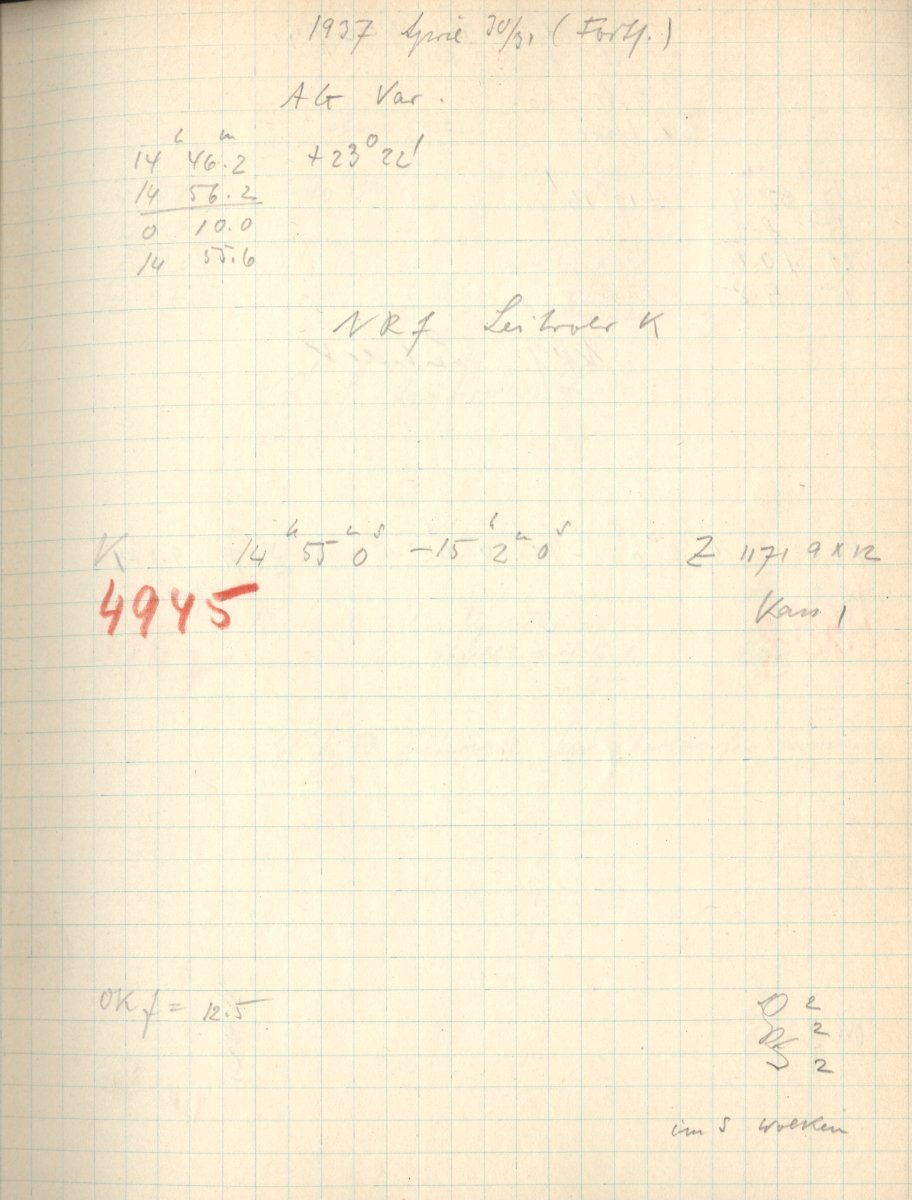 1937 April 30/31 (Forts.)
AG Var.
14h 46m.2 +23°22'
14 56.2
0 10.0
14 55.6
NRf Leitrohr K
K 14h 55m 0s – 15h 2m 0s Z 1171 9x12
4945
Kass 1
OK f = 12.5
2
2
2
im S Wolken